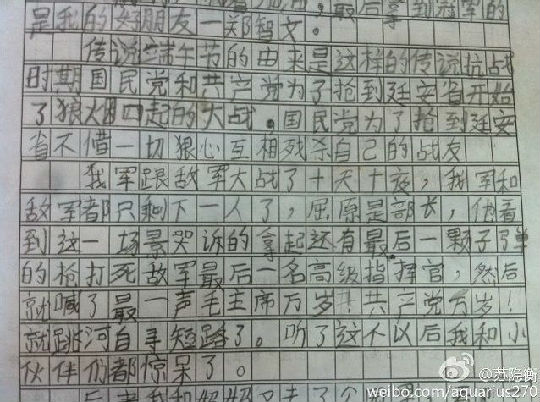 最后拿到冠军的
是我的好朋友一郑智文。
传说端午节的由来是这样的传说抗战
时期国民党和共产党为了抢到延安省开始
了狼火四起的大战。国民党为了抢到延安
省不借一切狠心互相残杀自己的战友
我军跟敌军大战了十天十夜，我军和
敌军都只剩下一人了，屈原是部长，他看
到这一场景哭诉的拿起还有最后一颗子弹
的枪打死敌军最后一名高级指挥官，然后
就喊了最一声毛主席万岁！共产党万岁！
就跳河自寻短路了。听了这个以后我和小
伙伴们都惊呆了。
后来我和
@苏隐衡
weibo.com/aquarius270